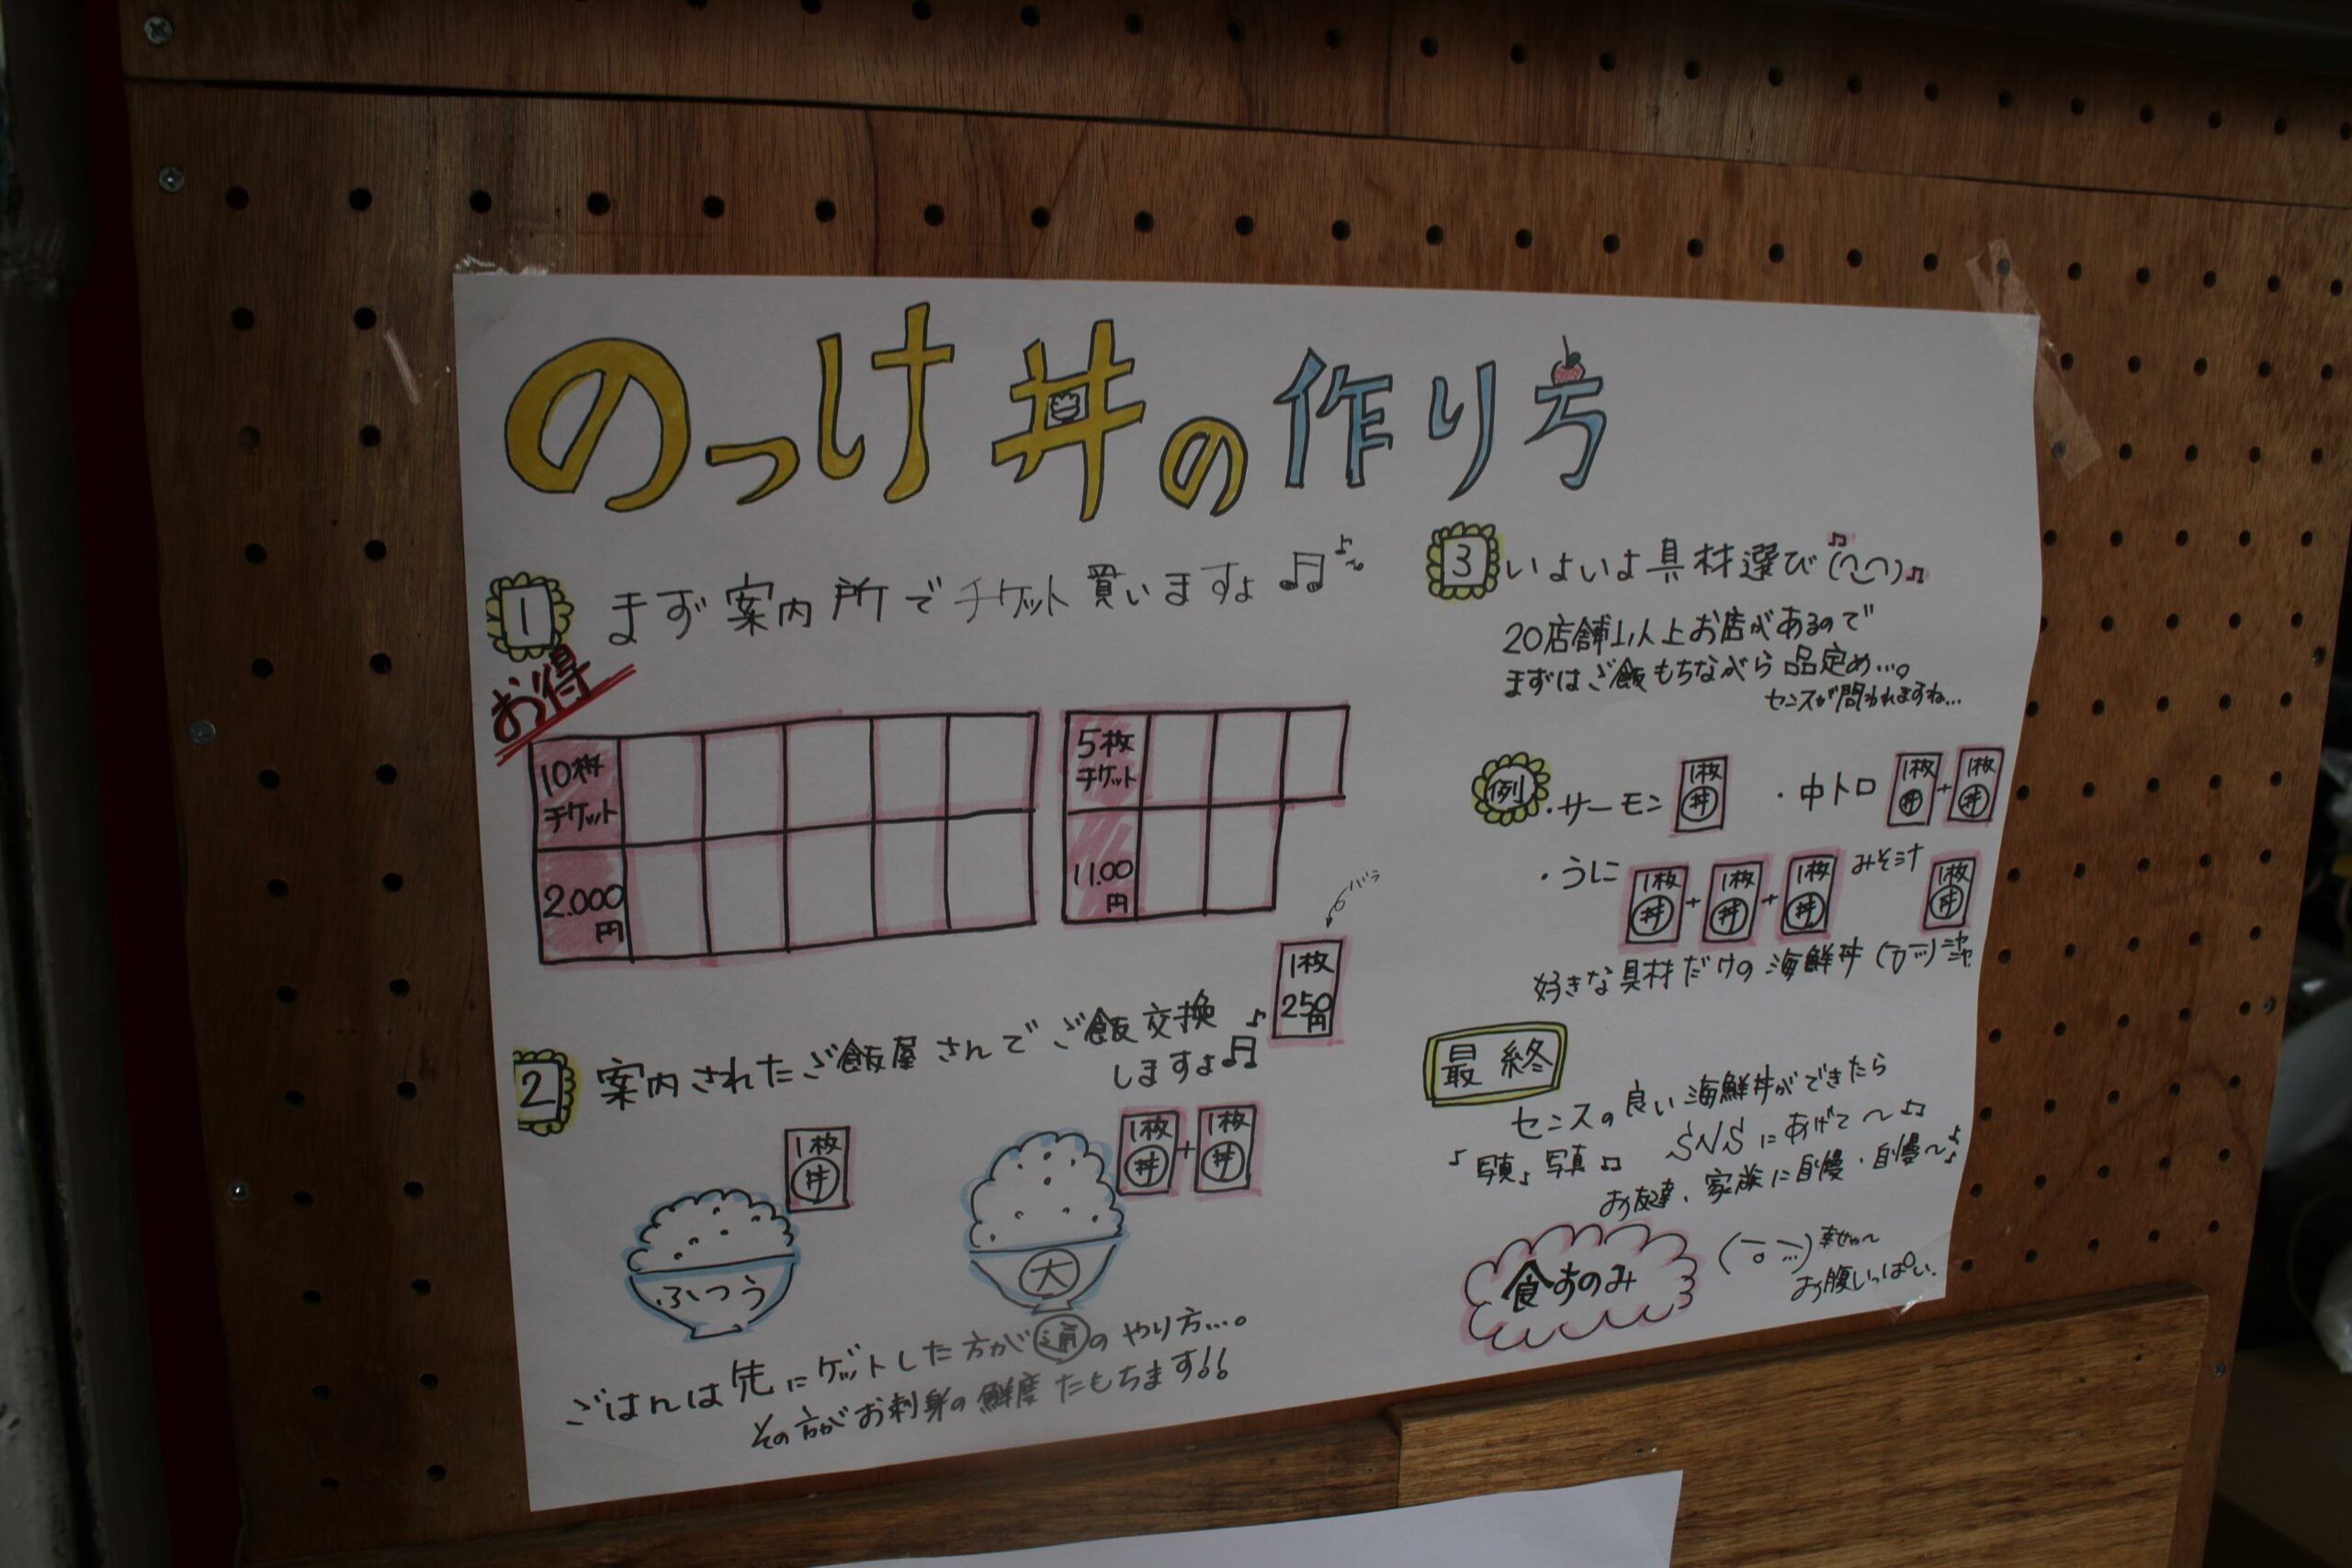 のっけ丼の作り方
1 まず案内所でチケット買いますよ♫♪
お得
10枚
チケット
2.000
円
5枚
チケット
11.00
円
バラ
1枚
250
円
2 案内されたご飯屋さんでご飯交換
しますよ♫
1枚
丼
ふつう
1枚 + 1枚
丼 丼
大
ごはんは先にゲットした方が通のやり方…。
その方がお刺身の鮮度たもちます!!
3 いよいよ具材選び
20店舗以上お店があるので
まずはご飯もちながら品定め…。
センスが問われますね…
例
・サーモン 1枚 丼
・中トロ 1枚 丼 + 1枚 丼
・うに 1枚 丼 + 1枚 丼 + 1枚 丼
みそ汁 1枚 丼
好きな具材だけの海鮮丼
最終
センスの良い海鮮丼ができたら
♪写真♪写真♫ SNSにあげて〜♫
お友達、家族に自慢・自慢〜♪
食すのみ
幸せ〜
お腹いっぱい.